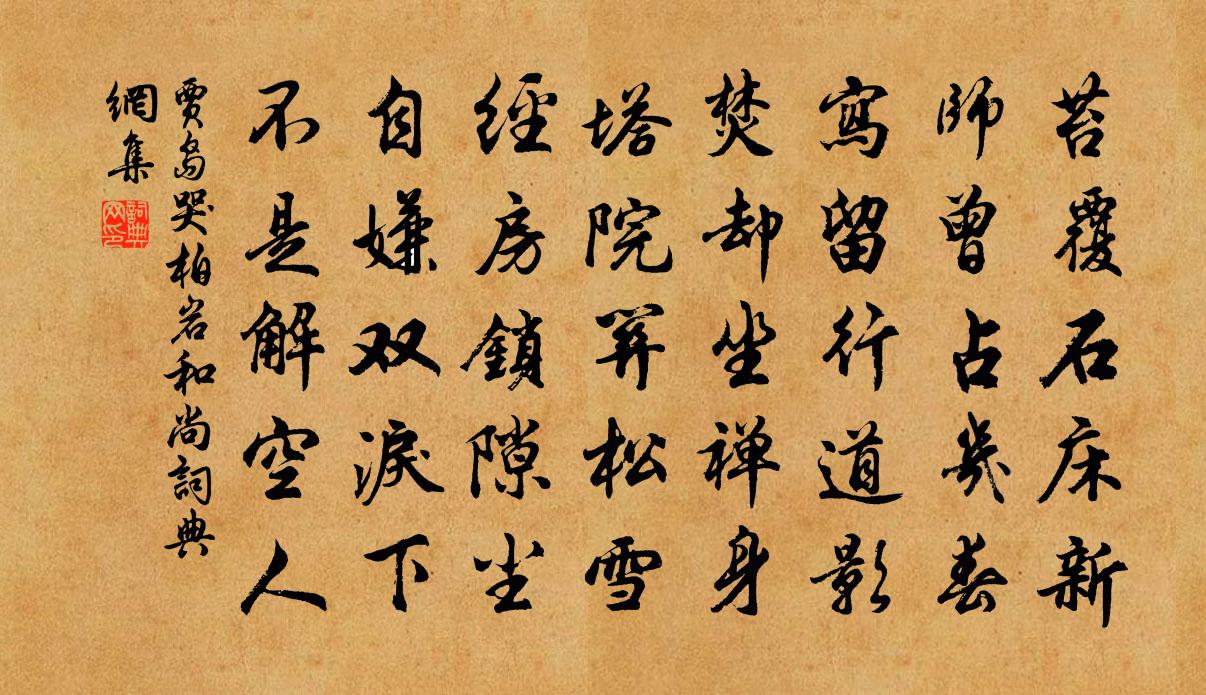 苔覆石床新
師曾占幾春
寫留行道影
焚却坐禅身
塔院关松雪
經房鎖隙尘
自嫌双淚下
不是解空人
賈島哭柏岩和尚詞典
網集
詞典
网印